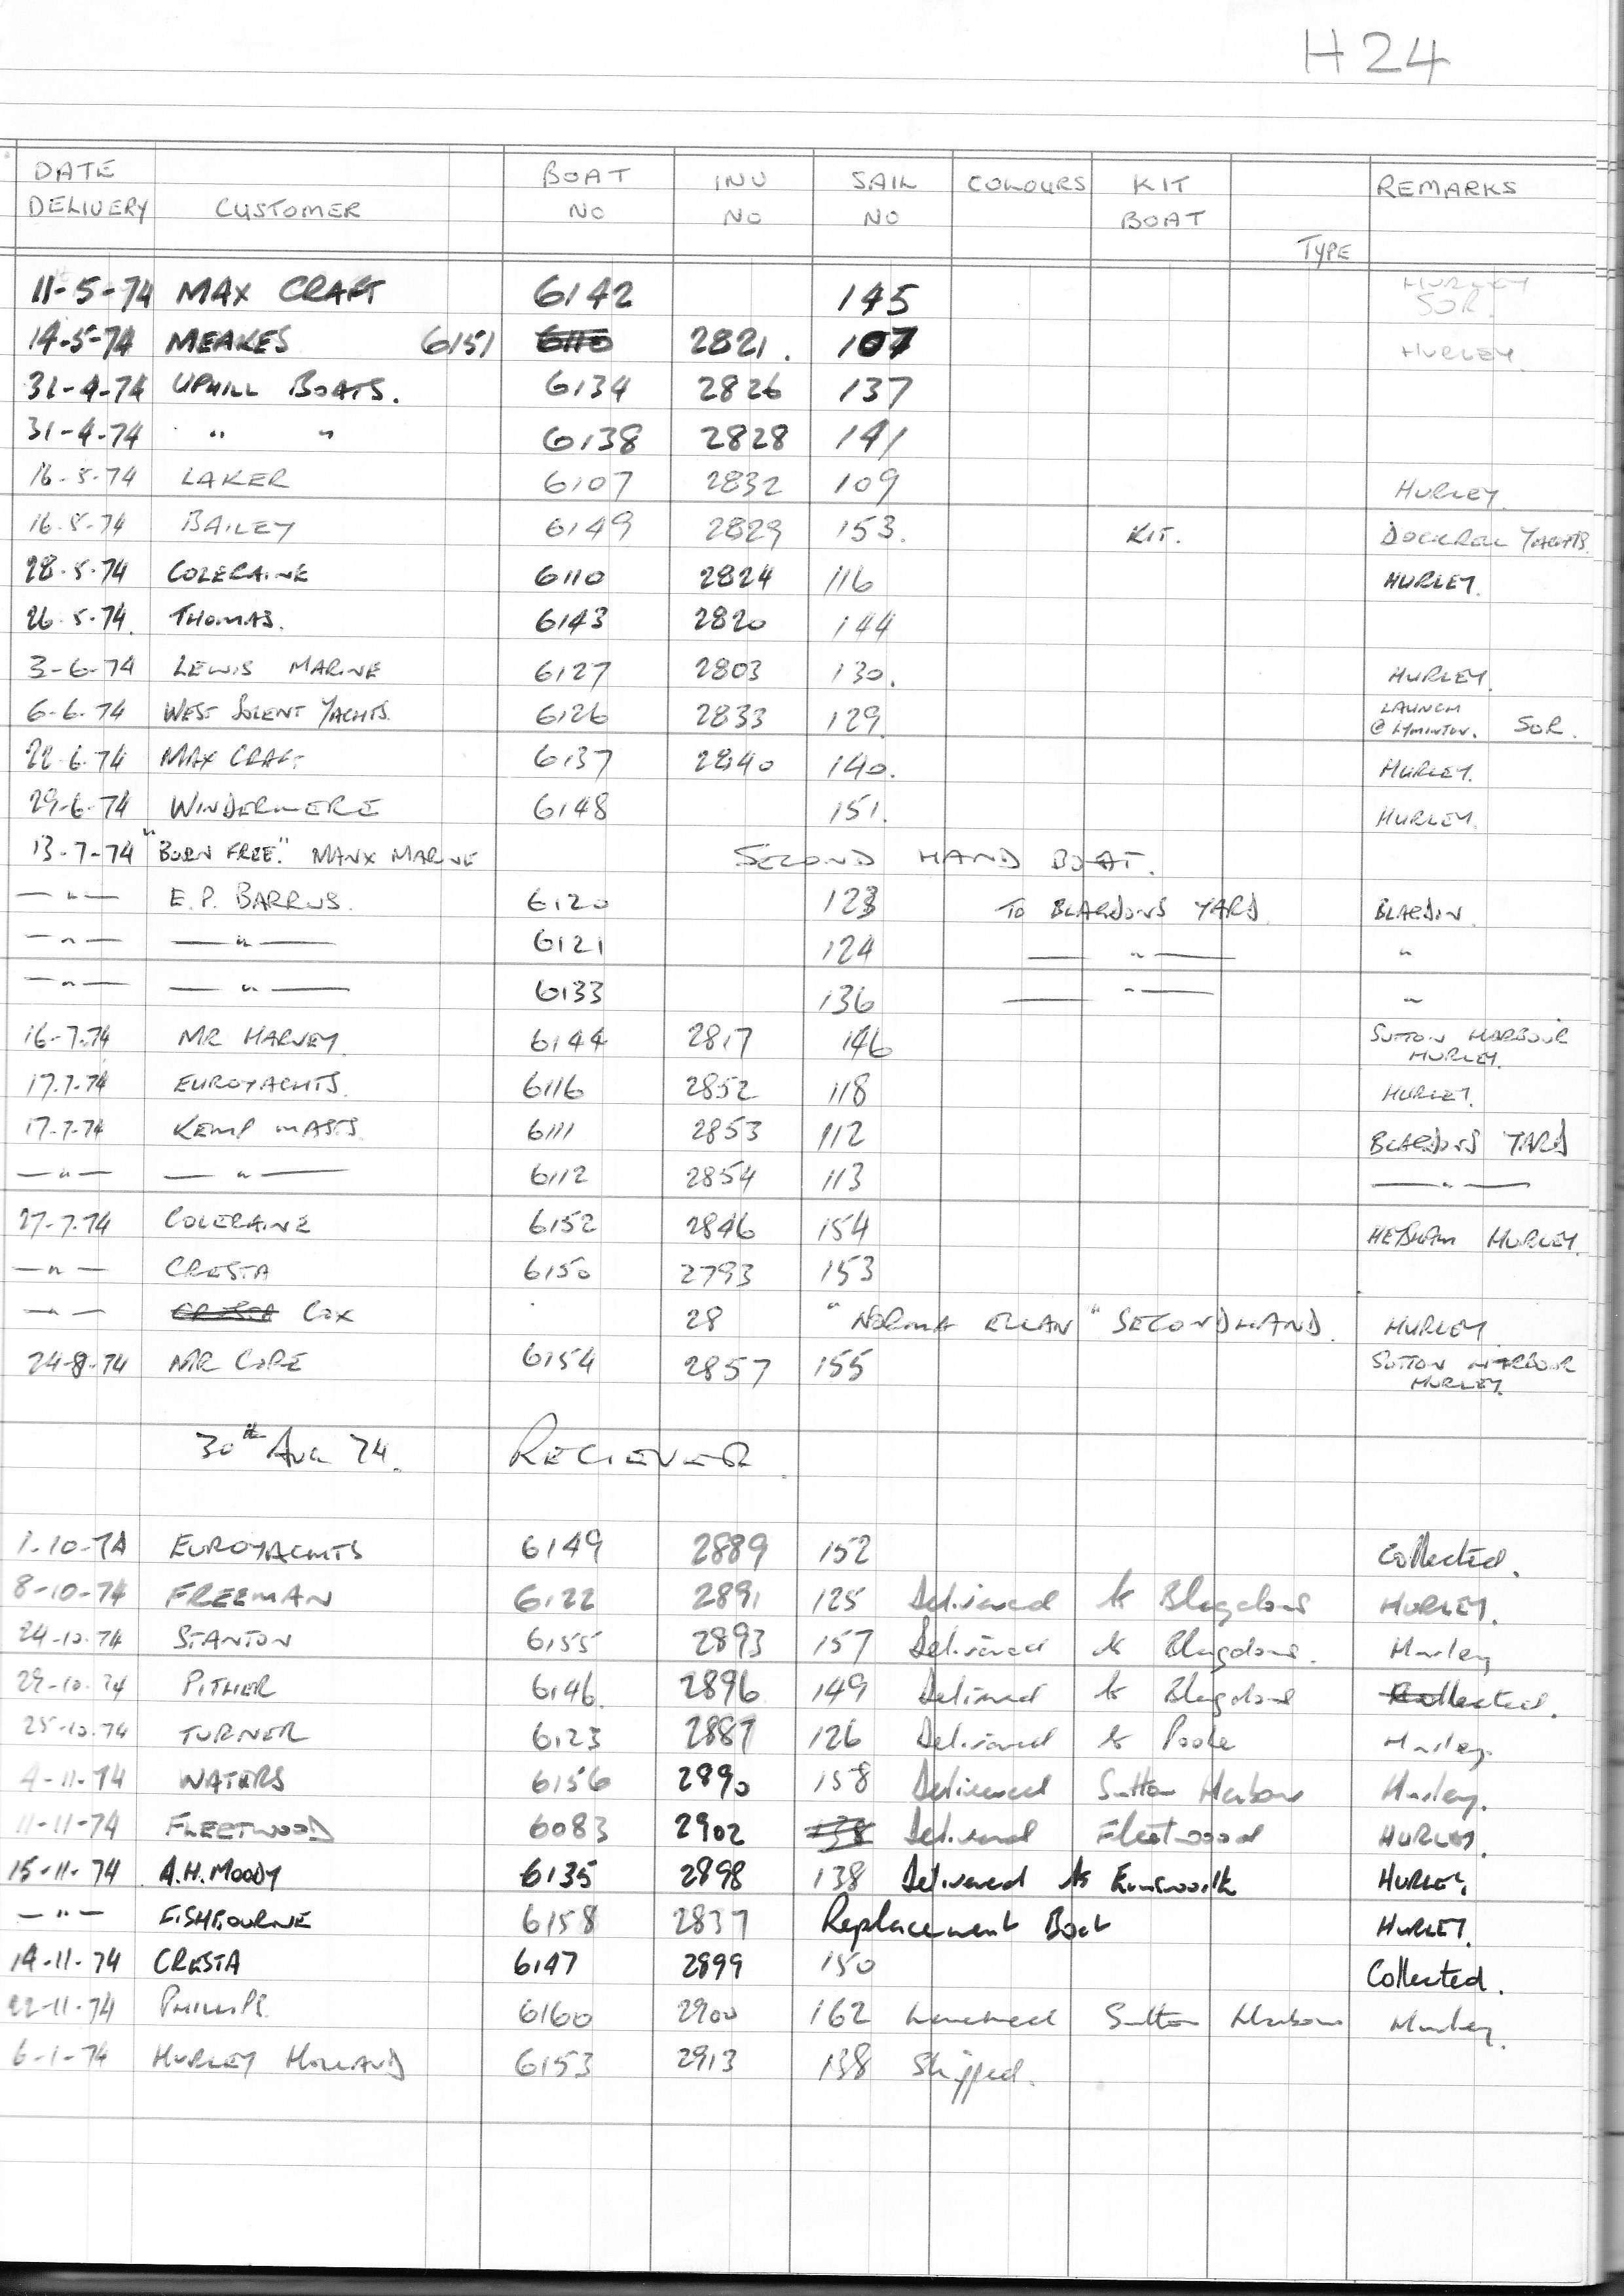 H 24
DATE DELIVERY CUSTOMER BOAT NO INV NO SAIL NO COLOURS KIT BOAT TYPE REMARKS
11-5-74 MAX CRAFT 6142 145 HURLEY SOR.
14-5-74 MEAKES 6151 6110 2821. 107 HURLEY.
31-4-74 UPHILL BOATS. 6134 2826 137
31-4-74 " " 6138 2828 141
16-5-74 LAKER 6107 2832 109 HURLEY.
16.5.74 BAILEY 6149 2829 153. KIT. YACHTS.
28.5.74 COLERAINE 6110 2824 116 HURLEY.
26.5.74. THOMAS. 6143 2820 144
3-6-74 LEWIS MARINE 6127 2803 130. HURLEY.
6-6.74 WEST SOLENT YACHTS. 6126 2833 129. LAUNCH @ LYMINTON. SOR.
22-6.74 MAX CRAFT 6137 2840 140. HURLEY.
29-6-74 WINDERMERE 6148 151. HURLEY.
13-7-74 "BORN FREE." MANX MARINE SECOND HAND BOAT.
— " — E.P. BARRUS. 6120 123 TO BLAGDONS YARD BLAGDON.
— " — — " — 6121 124 — " — "
— " — — " — 6133 136 — " — "
16-7.74 MR HARVEY. 6144 2817 146 SUTTON HARBOUR HURLEY.
17.7.74 EUROYACHTS. 6116 2852 118 HURLEY.
17.7.74 KEMP MASTS. 6111 2853 112 BLAGDONS YARD
— " — — " — 6112 2854 113 — " —
27-7.74 COLERAINE 6152 2846 154 HEYSHAM HURLEY.
— " — CRESTA 6150 2793 153
— " — CRESTA COX 28 "NORMA ELLAN" SECONDHAND. HURLEY.
24-8-74 MR COPE 6154 2857 155 SUTTON HARBOUR HURLEY.
30th AUG 74. RECIEVER.
1-10-74 EUROYACHTS 6149 2889 152 Collected.
8-10-74 FREEMAN 6122 2891 125 Delivered to Blagdons HURLEY.
24-10.74 STANTON 6155 2893 157 Delivered to Blagdons. Hurley
29-10.74 PITHER 6146. 2896 149 Delivered to Blagdons Collected.
25-10.74 TURNER 6123 2887 126 Delivered to Poole Hurley.
4-11-74 WATERS 6156 2890 158 Delivered Sutton Harbour Hurley.
11-11-74 FLEETWOOD 6083 2902 138 Delivered Fleetwood HURLEY.
15-11-74 A.H. MOODY 6135 2898 138 Delivered to Emsworth HURLEY.
— " — FISHBOURNE 6158 2837 Replacement Boat HURLEY.
14-11-74 CRESTA 6147 2899 150 Collected.
22-11-74 PHILLIPS. 6160 2900 162 Launched Sutton Harbour Hurley.
6-1-74 HURLEY HOLLAND 6153 2913 138 Shipped.